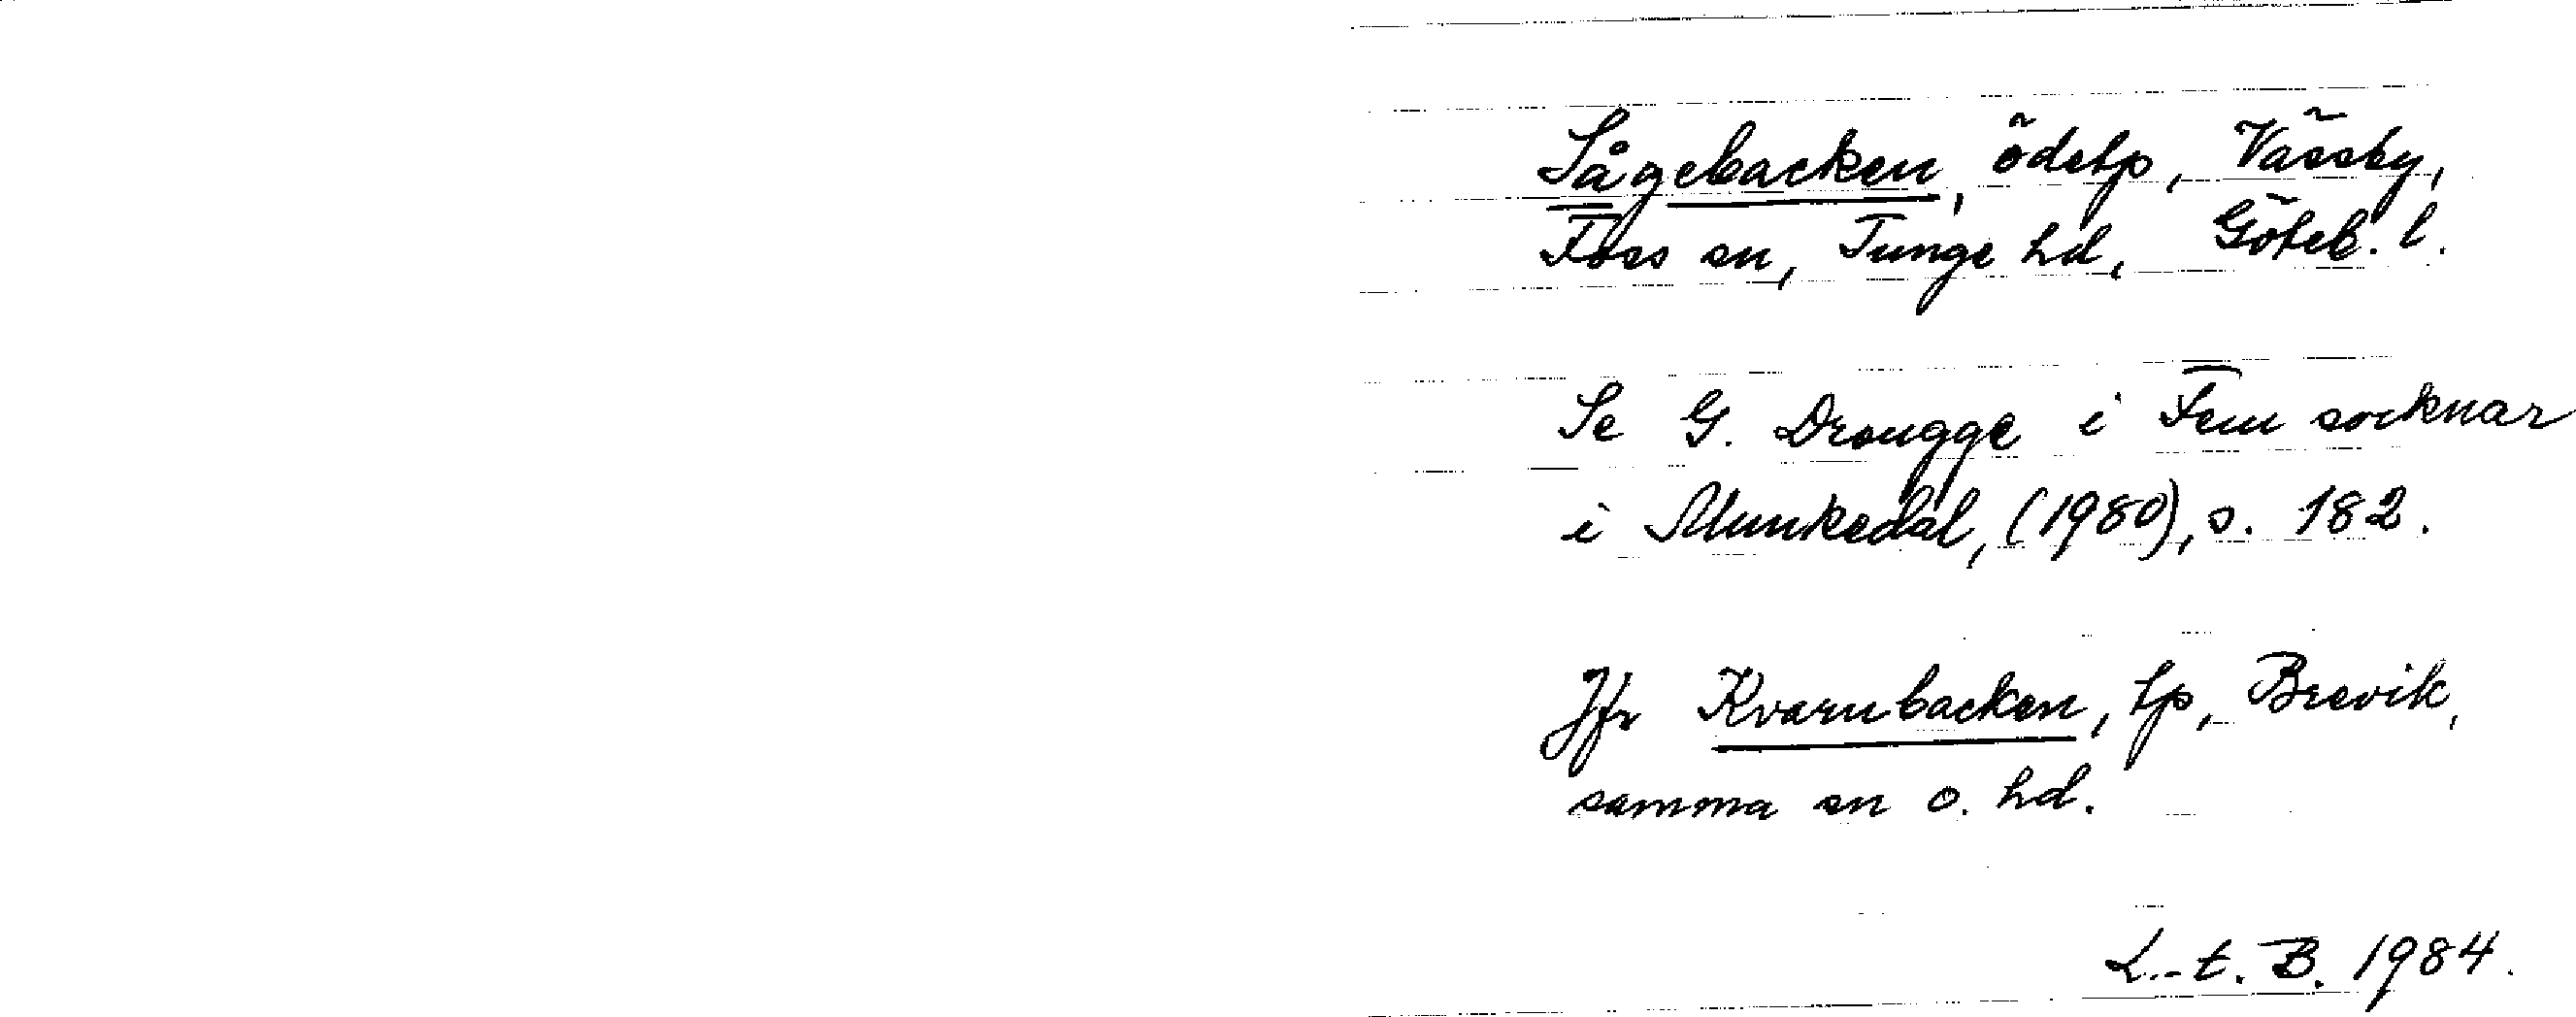 Sågebacken, ödetp, Vässby,
Foss sn, Tunge hd, Göteb. l.
Se G. Drougge i Fem socknar
i Munkedal, (1980), s. 182.
Jfr Kvarnbacken, tp, Brevik,
samma sn o. hd.
L.-t. B. 1984.